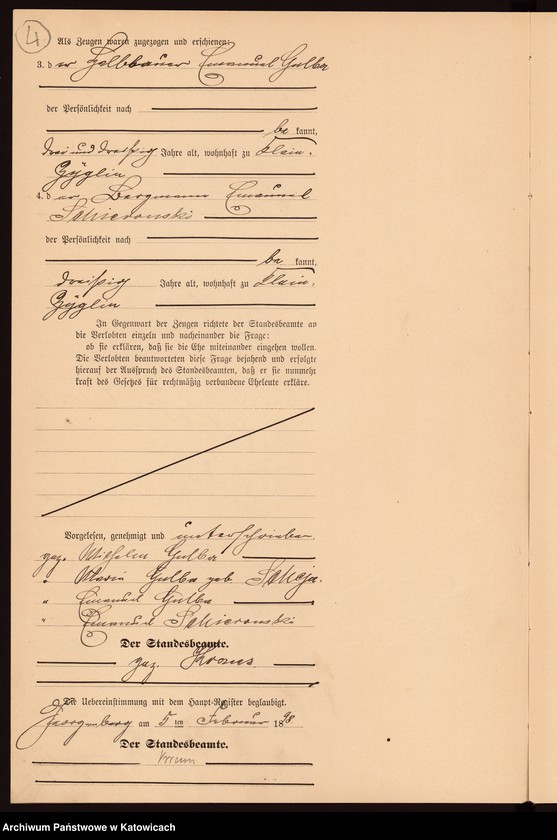 4
Als Zeugen waren zugezogen und erschienen:
3. der Halbbauer Emanuel Gulba
der Persönlichkeit nach
be kannt,
drei und dreißig Jahre alt, wohnhaft zu Klein-
Zyglin
4. der Bergmann Emanuel
Schieronski
der Persönlichkeit nach
be kannt,
dreißig Jahre alt, wohnhaft zu Klein-
Zyglin
In Gegenwart der Zeugen richtete der Standesbeamte an
die Verlobten einzeln und nacheinander die Frage:
ob sie erklären, daß sie die Ehe miteinander eingehen wollen.
Die Verlobten beantworteten diese Frage bejahend und erfolgte
hierauf der Ausspruch des Standesbeamten, daß er sie nunmehr
kraft des Gesetzes für rechtmäßig verbundene Eheleute erkläre.
Vorgelesen, genehmigt und unterschrieben
gez. Wilhelm Gulba
" Maria Gulba geb
" Emanuel Gulba
" Emanuel Schieronski
Der Standesbeamte.
gez. Kraus
Die Uebereinstimmung mit dem Haupt-Register beglaubigt.
Georgenberg am 5 ten Februar 1898
Der Standesbeamte.
Archiwum Państwowe w Katowicach